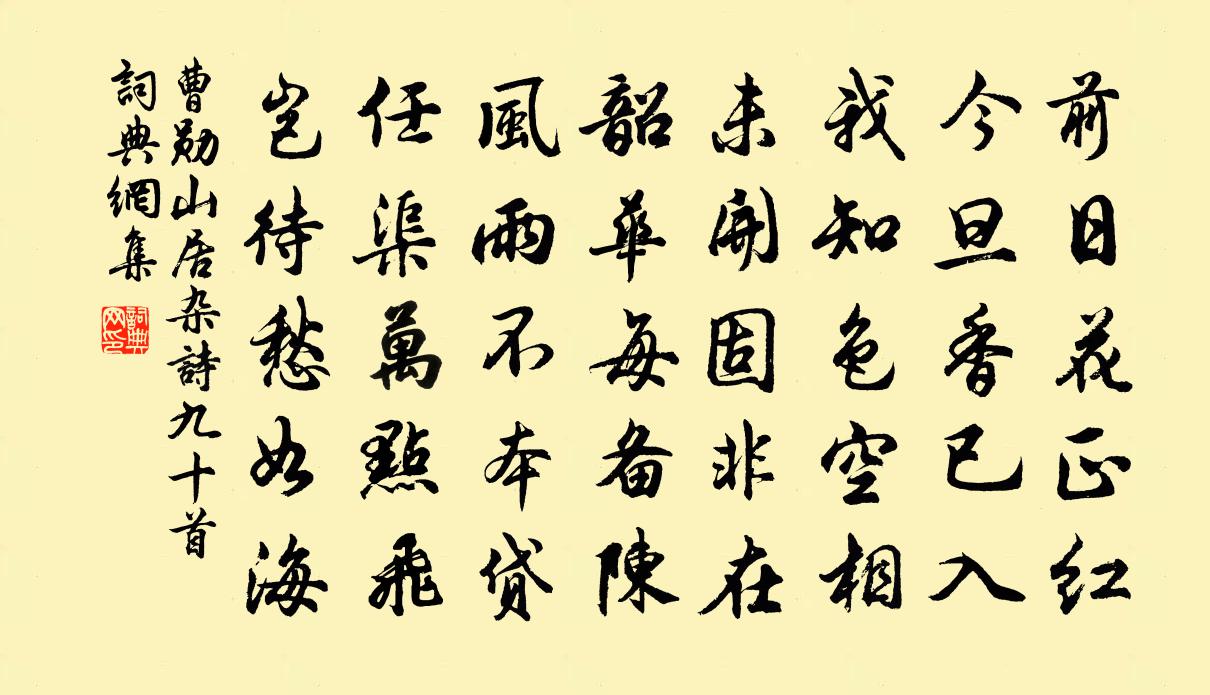 前日花正红
今旦香已入
我知色空相
未開固非在
韶華每备陳
風雨不本貸
任渠萬點飛
岂待愁如海
曹勋山居杂詩九十首
詞典網集
詞典网印